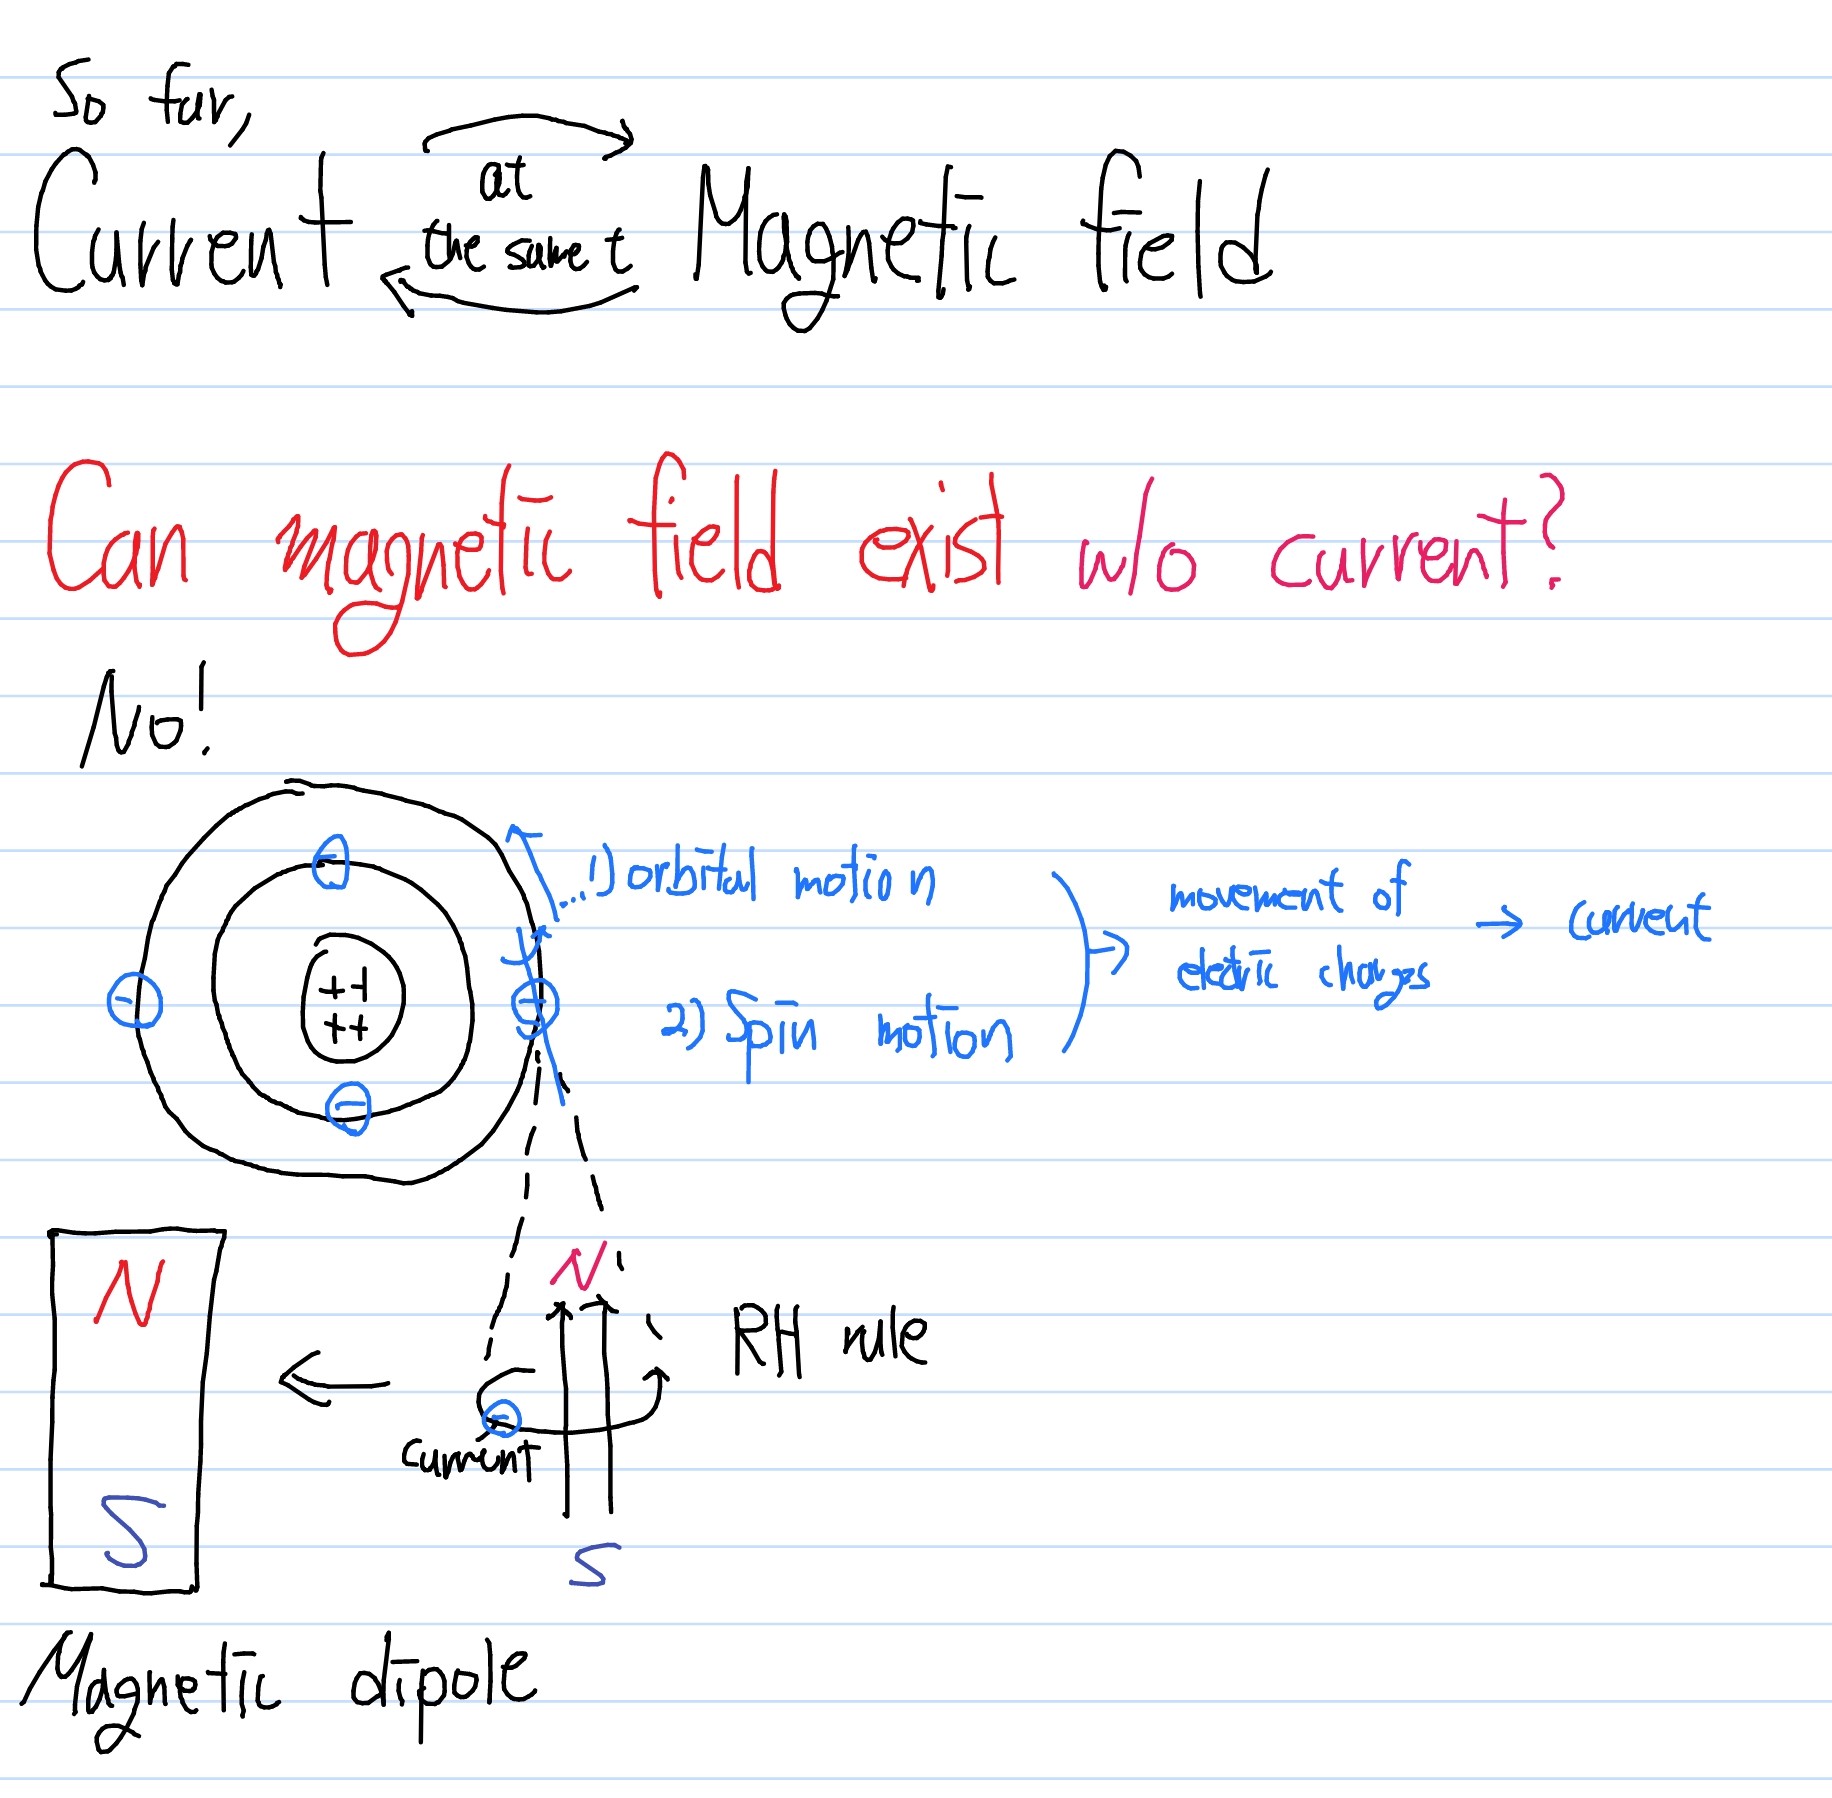 So far,
Current at the same t Magnetic field
Can magnetic field exist w/o current?
No!
...1) orbital motion
2) Spin motion
movement of
electric charges
→ current
-
-
++
++
-
-
N
S
N
RH rule
-
current
S
Magnetic dipole